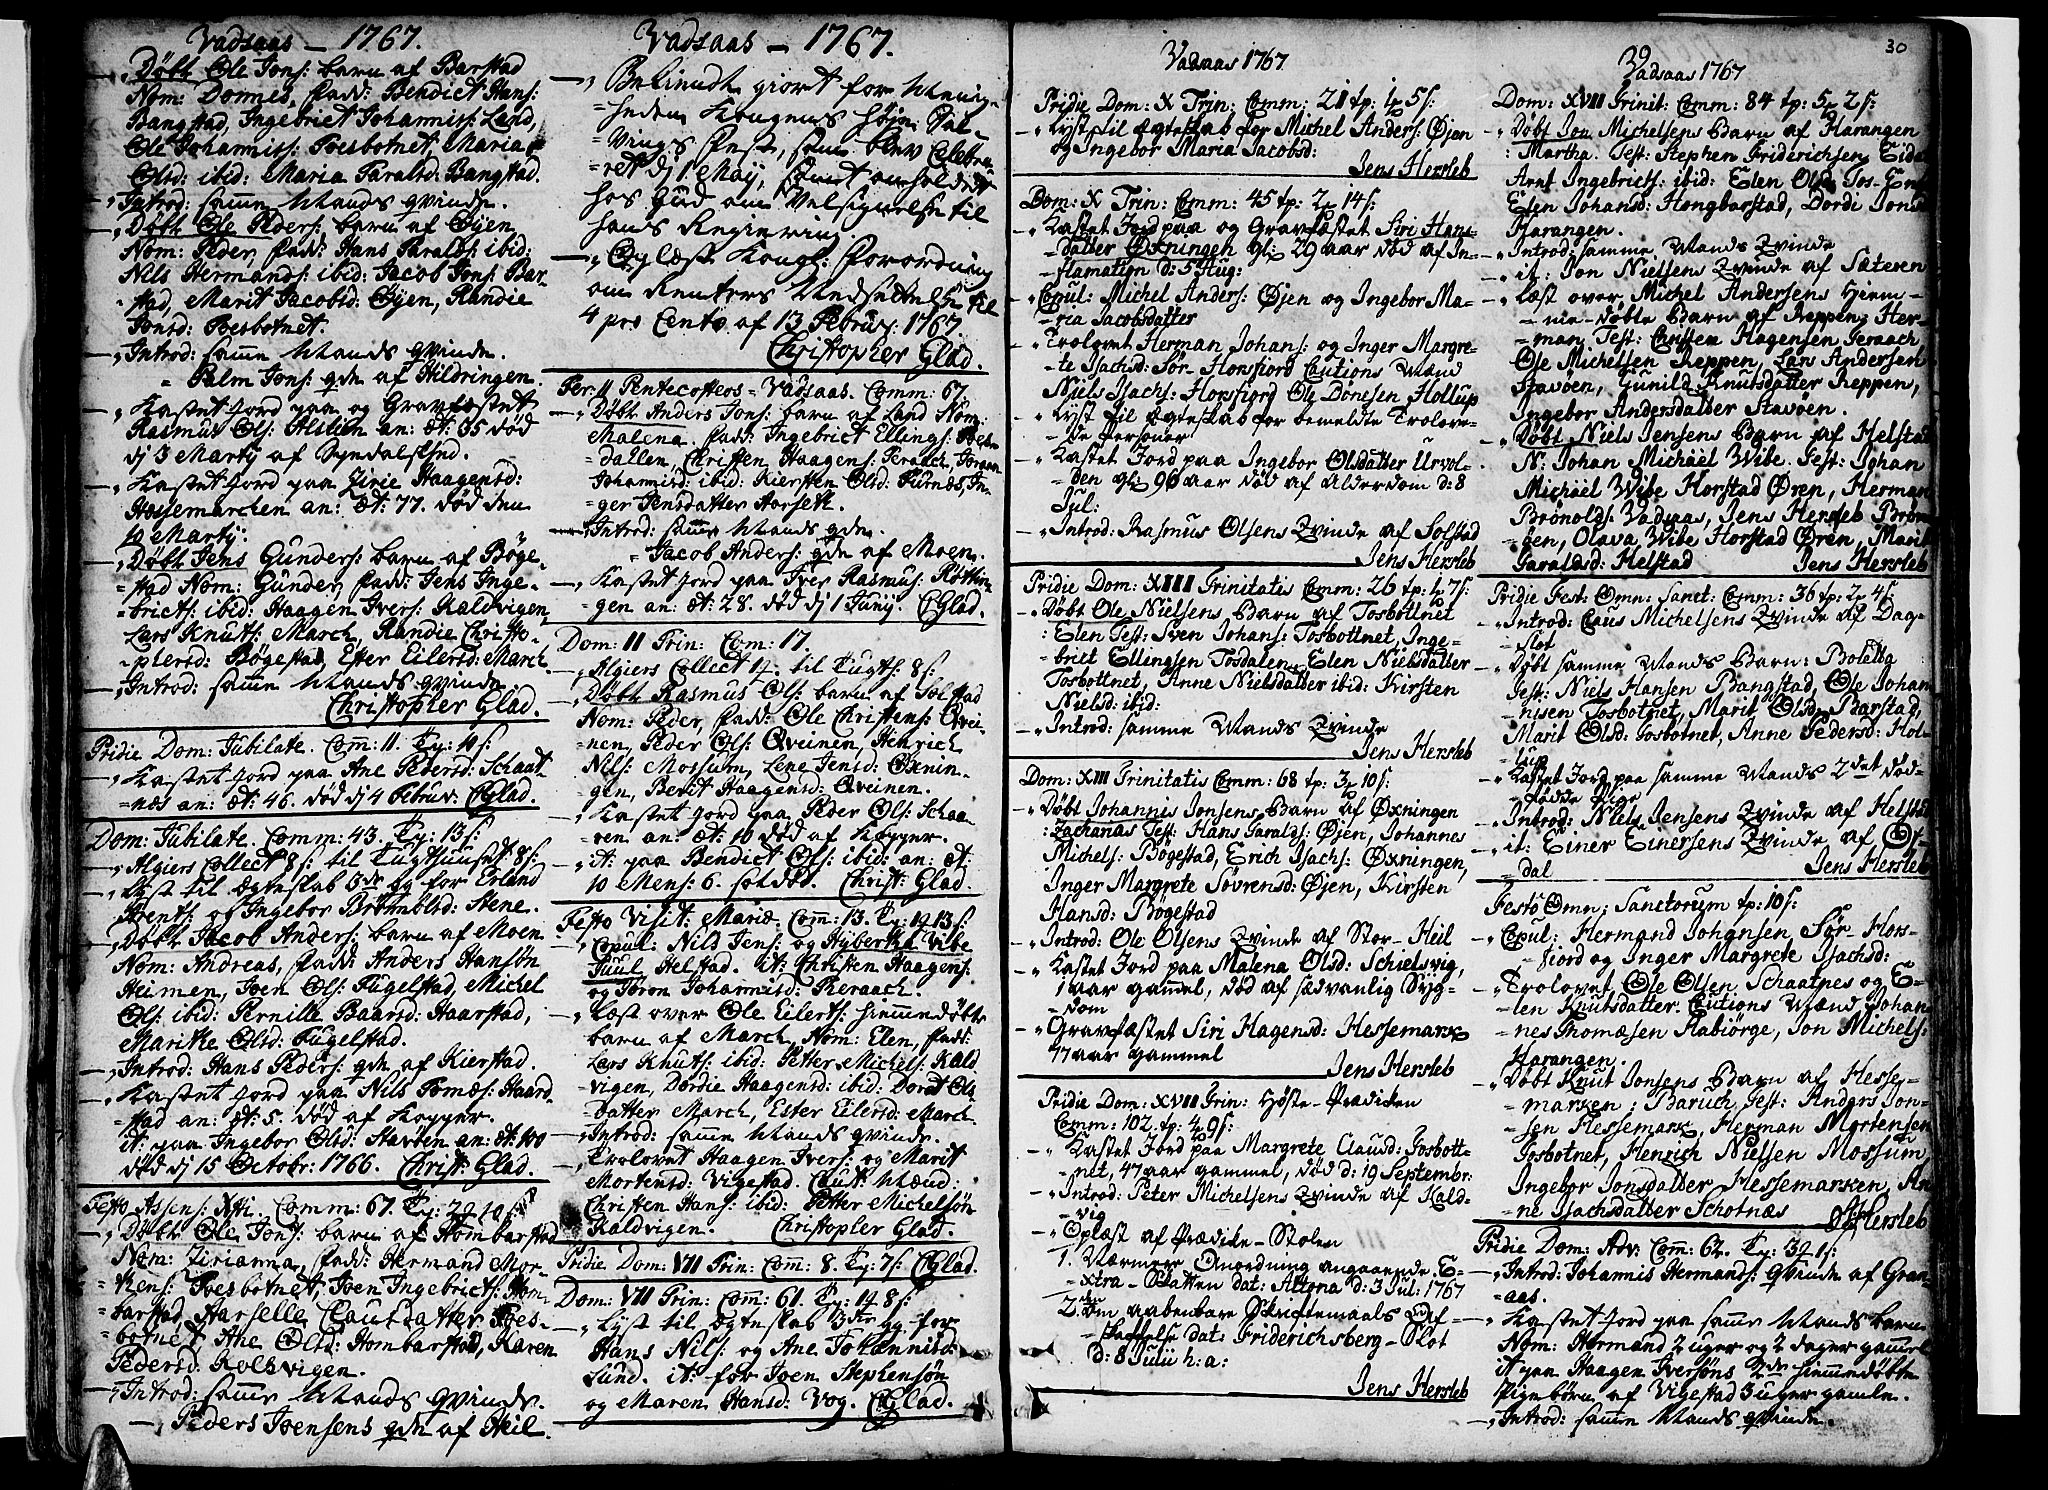 Vadsaas – 1767.
„Døbt Ole Jons: barn af Barstad
Nom: Donnes, fadd: Bendict Hans:
Bangstad, Ingebriet Johannis: Land,
Ole Johannis: Tosbotnet, Maria
Olsd: ibid: Maria Taralsd: Bangstad.
„Introd: samme Mands qvinde.
„Døbt Ole Peders: barn af Øyen
Nom: Peder, fadd: Hans Taralds: ibid:
Nils Hermands: ibid: Jacob Jons: Bar-
stad, Marit Jacobsd: Øyen, Randie
Jonsd: Tosbotnet.
„Introd: samme Mands qvinde.
„ Palm Jons: qde af Hildringen.
„Kastet jord paa og Gravfæstet
Rasmus Ols: Alstien an: æt: 35 død
dj 3 Martij af
„Kastet jord paa Zirie Haagensd:
Hessemarchen an: æt: 77. død den
10 Martij.
„Døbt Jens Gunders: barn af Bøge-
stad Nom: Gunder, fadd: Jens Inge-
brigts: ibid: Haagen Ivers: Kaldvigen,
Lars Knuts: March, Randie Christo-
phersd: Bøgestad, Ester Eilersd: March
„Introd: samme Mands qvinde.
Christopher Glad.
Pridie Dom: Jubilate. Comm: 11. Ty: 10 s:
„Kastet jord paa Ane Pedersd: Schaat-
næs an: æt: 46. død dj 4 Februv: CGlad.
Dom: Jubilate. Comm: 43. Ty: 13 s:
„Algiers Collect 8 s: til Tugthuuset 8 s:
„Lyst til Ægteskab 3de gg for Erland
Arents: og Ingebor Brømblsd: Stene.
„Døbt Jacob Anders: barn af Moen
Nom: Andreas, fadd: Anders Hansøn
Heimen, Joen Ols: Fugelstad, Michel
Ols: ibid: Pernille Baarsd: Haarstad,
Marithe Olsd: Fugelstad.
„Introd: Hans Peders: qde af Kierstad.
„Kastet jord paa Nils Tomæs: Haard
stad an: æt: 5. død af Kopper.
it: paa Ingebor Olsd: Stavøen an: æt: 100
død dj 15 Octobr: 1766. Christ: Glad.
Festo Assens: Xsti. Comm: 67. Ty: 2 10 s:
„Døbt Ole Jons: barn af Hombarstad
Nom: Zirianna, fadd: Hermand Mor-
tens: Tosbotnet, Joen Ingebricts: Hom-
barstad, Marselle Clausdatter Tos-
botnet, Ane Olsd: Hombarstad, Karen
Pedersd: Kolsvigen.
„Introd: samme Mands qvinde.
„Peders Joensens qde af Heil.
Vadsaas – 1767.
„Bekiendt giort for Menig-
heden Kongens høje Sal-
vings fest, som blev Celebre-
ret dj 1. Maij, samt anholdet
hos Gud om Velsignelse til
hans Regiering.
„Oplæst Kongl: forordning
om Renters Nedsettelse til
4 pro Cento af 13 Februv: 1767.
Christopher Glad.
Fer: II Pentecosteos – Vadsaas. Comm: 67
„Døbt Anders Jons: barn af Land Nom:
Malena. fadd: Ingebrict Ellings: Tos-
dallen, Christen Haagens: Teraach, Joran
Johannisd: ibid: Kiersten Olsd: Turnæs, In-
ger Jensdatter Horseth.
„Introd: samme Mands qde.
„Jacob Anders: qde af Moen.
„Kastet jord paa Iver Rasmus: Røttin-
gen an: æt: 28. død dj 1 Junij. CGlad.
Dom: II Trin: Com: 17.
„Algiers Collect 4. til Tugths: 8 s:
„Døbt Rasmus Ols: barn af Solstad
Nom: Peder, fadd: Ole Christens: Qvei-
nen, Peder Ols: Qveinen, Henrich
Nils: Mossum, Lene Jensd: Øxnin-
gen, Berit Haagensd: Qveinen.
„Kastet jord paa Peder Ols: Schaa-
ren an: æt: 10 død af Kopper.
„it: paa Bendict Ols: ibid: an: æt:
10 Mens: 6. sotdød. Christ: Glad.
Festo Visit: Mariæ. Com: 13. Ty: 1 13 s:
„Copul: Nils Jens: og Hyberth: Vibe
Juul Helstad. it: Christen Haagens:
og Joron Johannisd: Theraach.
„Læst over Ole Eilerts: hiemmedøbte
barn af March, Nom: Elen, fadd:
Lars Knuts: ibid: Petter Michels: Kald
vigen, Dordie Haagensd: ibid: Dorot Ols
datter March, Ester Eilersd: March
„Introd: samme Mands qvinde.
„Trolovet Haagen Ivers: og Marit
Mortensd: Vigestad. Caut: Mænd:
Christen Hans: ibid: Petter Michelsøn
Kaldvigen. Christopher Glad.
Pridie Dom: VII Trin: Com: 8. Ty: 7 s: CGlad.
Dom: VII Trin: Com: 61. Ty: 1 8 s:
„Lyst til Ægteskab 3die gg for
Hans Nils: og Ane Johannisd:
Lund. it: for Joen Stephensøn
og Maren Hansd: Vog. CGlad.
Vadsaas 1767.
Pridie Dom: X Trin: Comm: 21 tp: 1 5 s:
„Lyst til Ægteskab for Michel Anders: Øjen
og Ingebor Maria Jacobsd:
Jens Hersleb
Dom: X Trin: Comm: 45 tp: 2 14 s:
„Kastet Jord paa og Gravfæstet Siri Hans-
datter Øxningen gl: 29 aar død af In-
flamation d: 5 Aug:
„Copul: Michel Anders: Øjen og Ingebor Ma-
ria Jacobsdatter
„Trolovet Herman Johans: og Inger Margre-
te Isachsd: Sør-Horsfiord Cautions Mænd
Niels Isachs: Horsfiord Ole Dønesen Hollup
„Lyst til Ægteskab for bemeldte Trolove-
de Personer
„Kastet Jord paa Ingebor Olsdatter Urvol-
den gl: 96 aar død af Alderdom d: 8
Jul:
„Introd: Rasmus Olsens Qvinde af Solstad
Jens Hersleb
Pridie Dom: XIII Trinitatis Comm: 26 tp: 1 7 s:
„Døbt Ole Nielsens Barn af Tosbottnet
: Elen Test: Sven Johans: Tosbottnet, Inge-
briet Ellingsen Tosdalen, Elen Nielsdatter
Tosbottnet, Anne Nielsdatter ibid: Kirsten
Nielsd: ibid:
„Introd: samme Mands Qvinde
Jens Hersleb
Dom: XIII Trinitatis Comm: 68 tp: 3 10 s:
„Døbt Johannis Jonsens Barn af Øxningen
: Zacharias Test: Hans Taralds: Øjen, Johannes
Michels: Bøgestad, Erich Isachs: Øxningen,
Inger Margrete Søvrensd: Øjen, Kirsten
Hansd: Bøgestad
„Introd: Ole Olsens Qvinde af Stor-Heil
„Kastet Jord paa Malena Olsd: Schielsvig,
1 aar gammel, død af sædvanlig Syg-
dom
„Gravfæstet Siri Hagensd: Hessemarx
77 aar gammel
Jens Hersleb
Pridie Dom: XVII Trin: Høste-Prædiken
Comm: 102. tp: 4 9 s:
„Kastet Jord paa Margrete Clausd: Tosbott-
net, 47 aar gammel, død d: 19 Septembr:
„Introd: Peter Michelsens Qvinde af Kald-
vig
„Oplæst af Prædike-Stolen
1. Nærmere Anordning angaaende E-
xtra-Skatten dat: Altona d: 3 Jul: 1767
2. Om aabenbare Skriftemaals Af-
skaffelse dat: Friderichsberg-Slot
d: 8 Julii h: a:
Jens Hersleb
30
39
Vadsaas 1767
Dom: XVIII Trinit: Comm: 84 tp: 5 2 s:
„Døbt Jon Michelsens Barn af Harangen
: Martha. Test: Stephen Friderichsen Eide
Arnt Ingebricts: ibid: Elen Olsd: Tos-
Elen Johansd: Hongbarstad, Dordi Jonsd
Harangen.
„Introd: samme Mands Qvinde
„it: Jon Nielsens Qvinde af Sæteren
„Læst over Michel Andersens Hiem-
me-døbte Barn af Reppen: Her-
man. Test: Christen Hagensen Teraach,
Ole Michelsen Reppen, Lars Andersen
Stavøen, Gunild Knutsdatter Reppen,
Ingebor Andersdatter Stavøen.
„Døbt Niels Jensens Barn af Helstad
N: Johan Michael Wibe. Test: Johan
Michael Wibe Horstad Øren, Herman
Brønolds: Vadsaas, Jens Hersleb Brøn-
gen, Olava Wibe Horstad Øren, Marit
Taraldsd: Helstad Jens Hersleb
Pridie Fest: Omn: Sanct: Comm: 36 tp: 2 4 s:
„Introd: Claus Michelsens Qvinde af Dag-
slot
„Døbt samme Mands Barn: Boletta
Test: Niels Hansen Bangstad, Ole Johan-
nisen Tosbotnet, Marit Olsd: Barstad,
Marit Olsd: Tosbotnet, Anne Pedersd: Hol-
lup
„Kastet Jord paa samme Mands 2det død-
fødde Pige
„Introd: Niels Jensens Qvinde af Helstad
„it: Einer Einersens Qvinde af
dal Jens Hersleb
Festo Omn: Sanctorum tp: 10 s:
„Copul: Hermand Johansen Sør Hors-
fiord og Inger Margrete Isachsd:
„Trolovet Ole Olsen Schaatnes og E-
len Knutsdatter. Cautions Mænd Johan-
nes Thomæsen Aabiørge, Jon Michels:
Harangen.
„Døbt Knut Jonsens Barn af Hesse-
marxen: Baruch. Test: Anders Jon-
sen Hessemarx, Herman Mortensen
Tosbotnet, Henrich Nielsen Mossum
Ingebor Jonsdatter Hessemarxen, An-
ne Isachsdatter Schotnæs JHersleb
Pridie Dom: Adv: Com: 62. Ty: 3 1 s:
„Introd: Johannis Hermands: Qvinde af Gran-
aas.
„Kastet jord paa samme Mands barn
Nom: Hermand 2 uger og 2 dager gammel
it paa Haagen Iversøns 2de hiemmedøbte
Pigebørn af Vigestad 3 uger gamle.
„Introd: samme Mands qvinde.